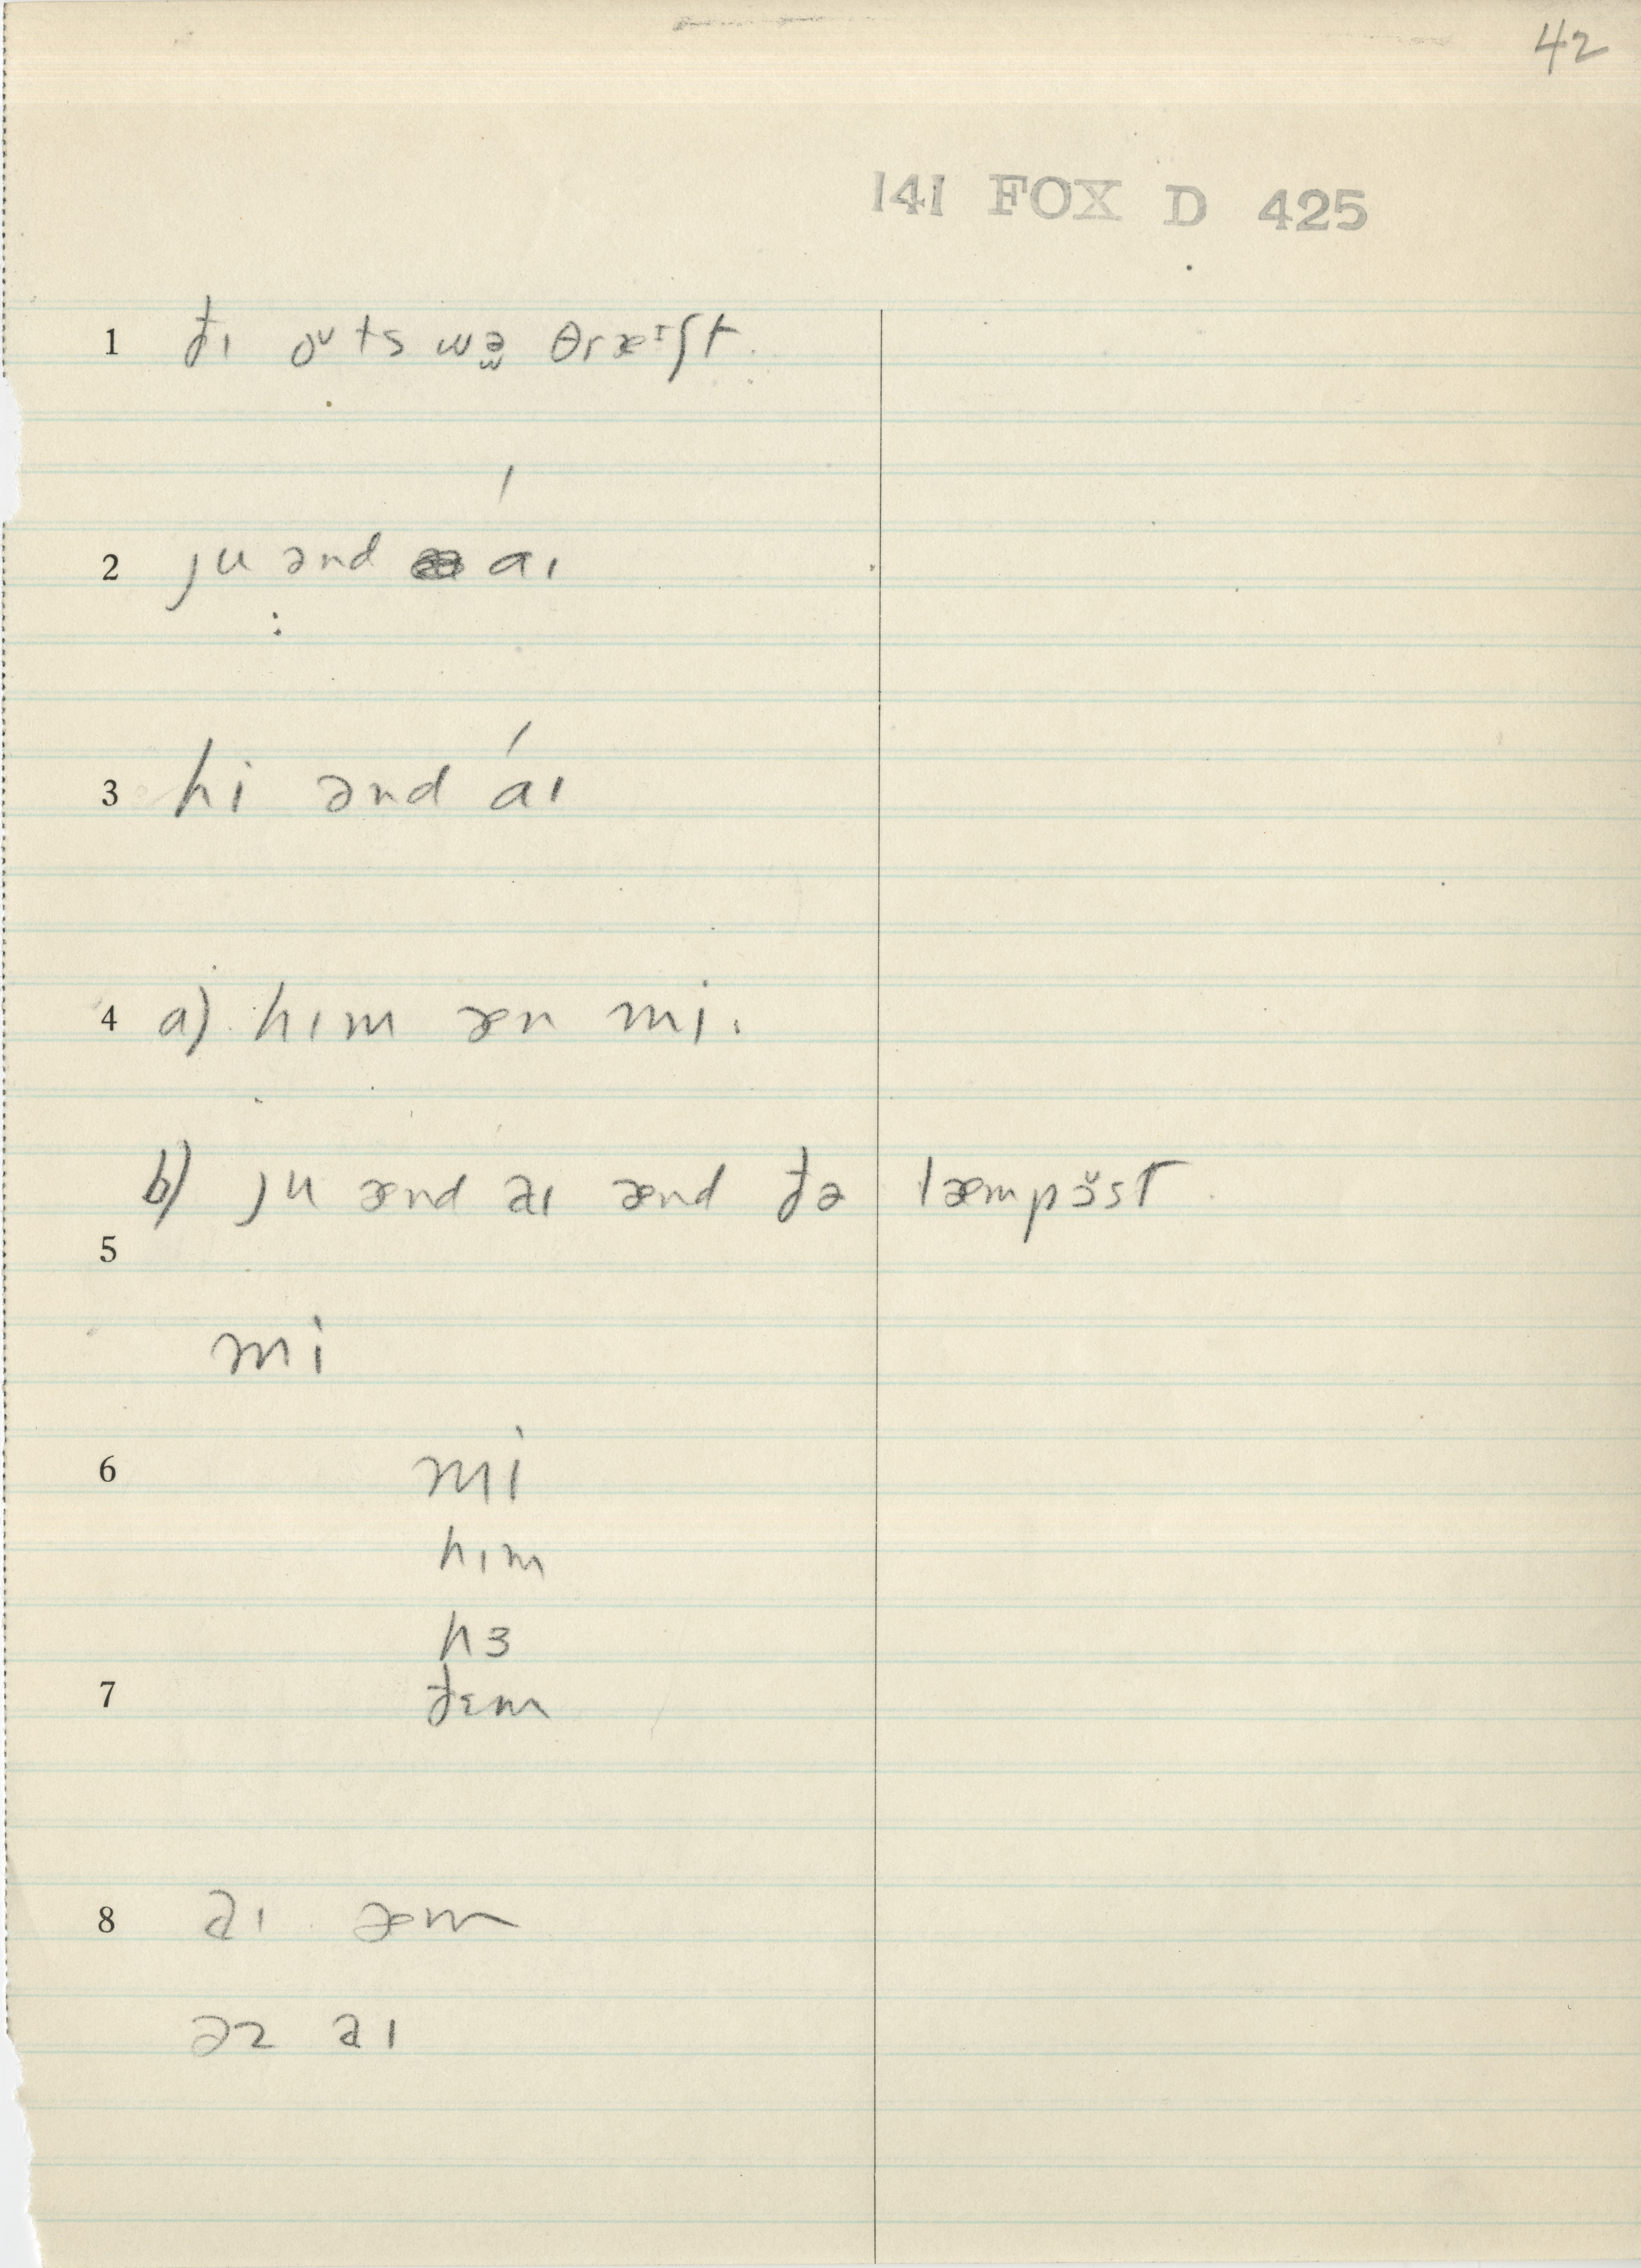 42
141 FOX D 425
1 ðɪ oᵘts wə̯ θræᶦʃt.
2 ju ənd aɪ
3 hi ənd áɪ
4 a) hɪm æn mi.
b) ju ænd aɪ ænd ðə læmpɔ̆st.
5
mi
6 mi
hɪm
hɜ
7 ðɛm
8 aɪ æm
əz aɪ